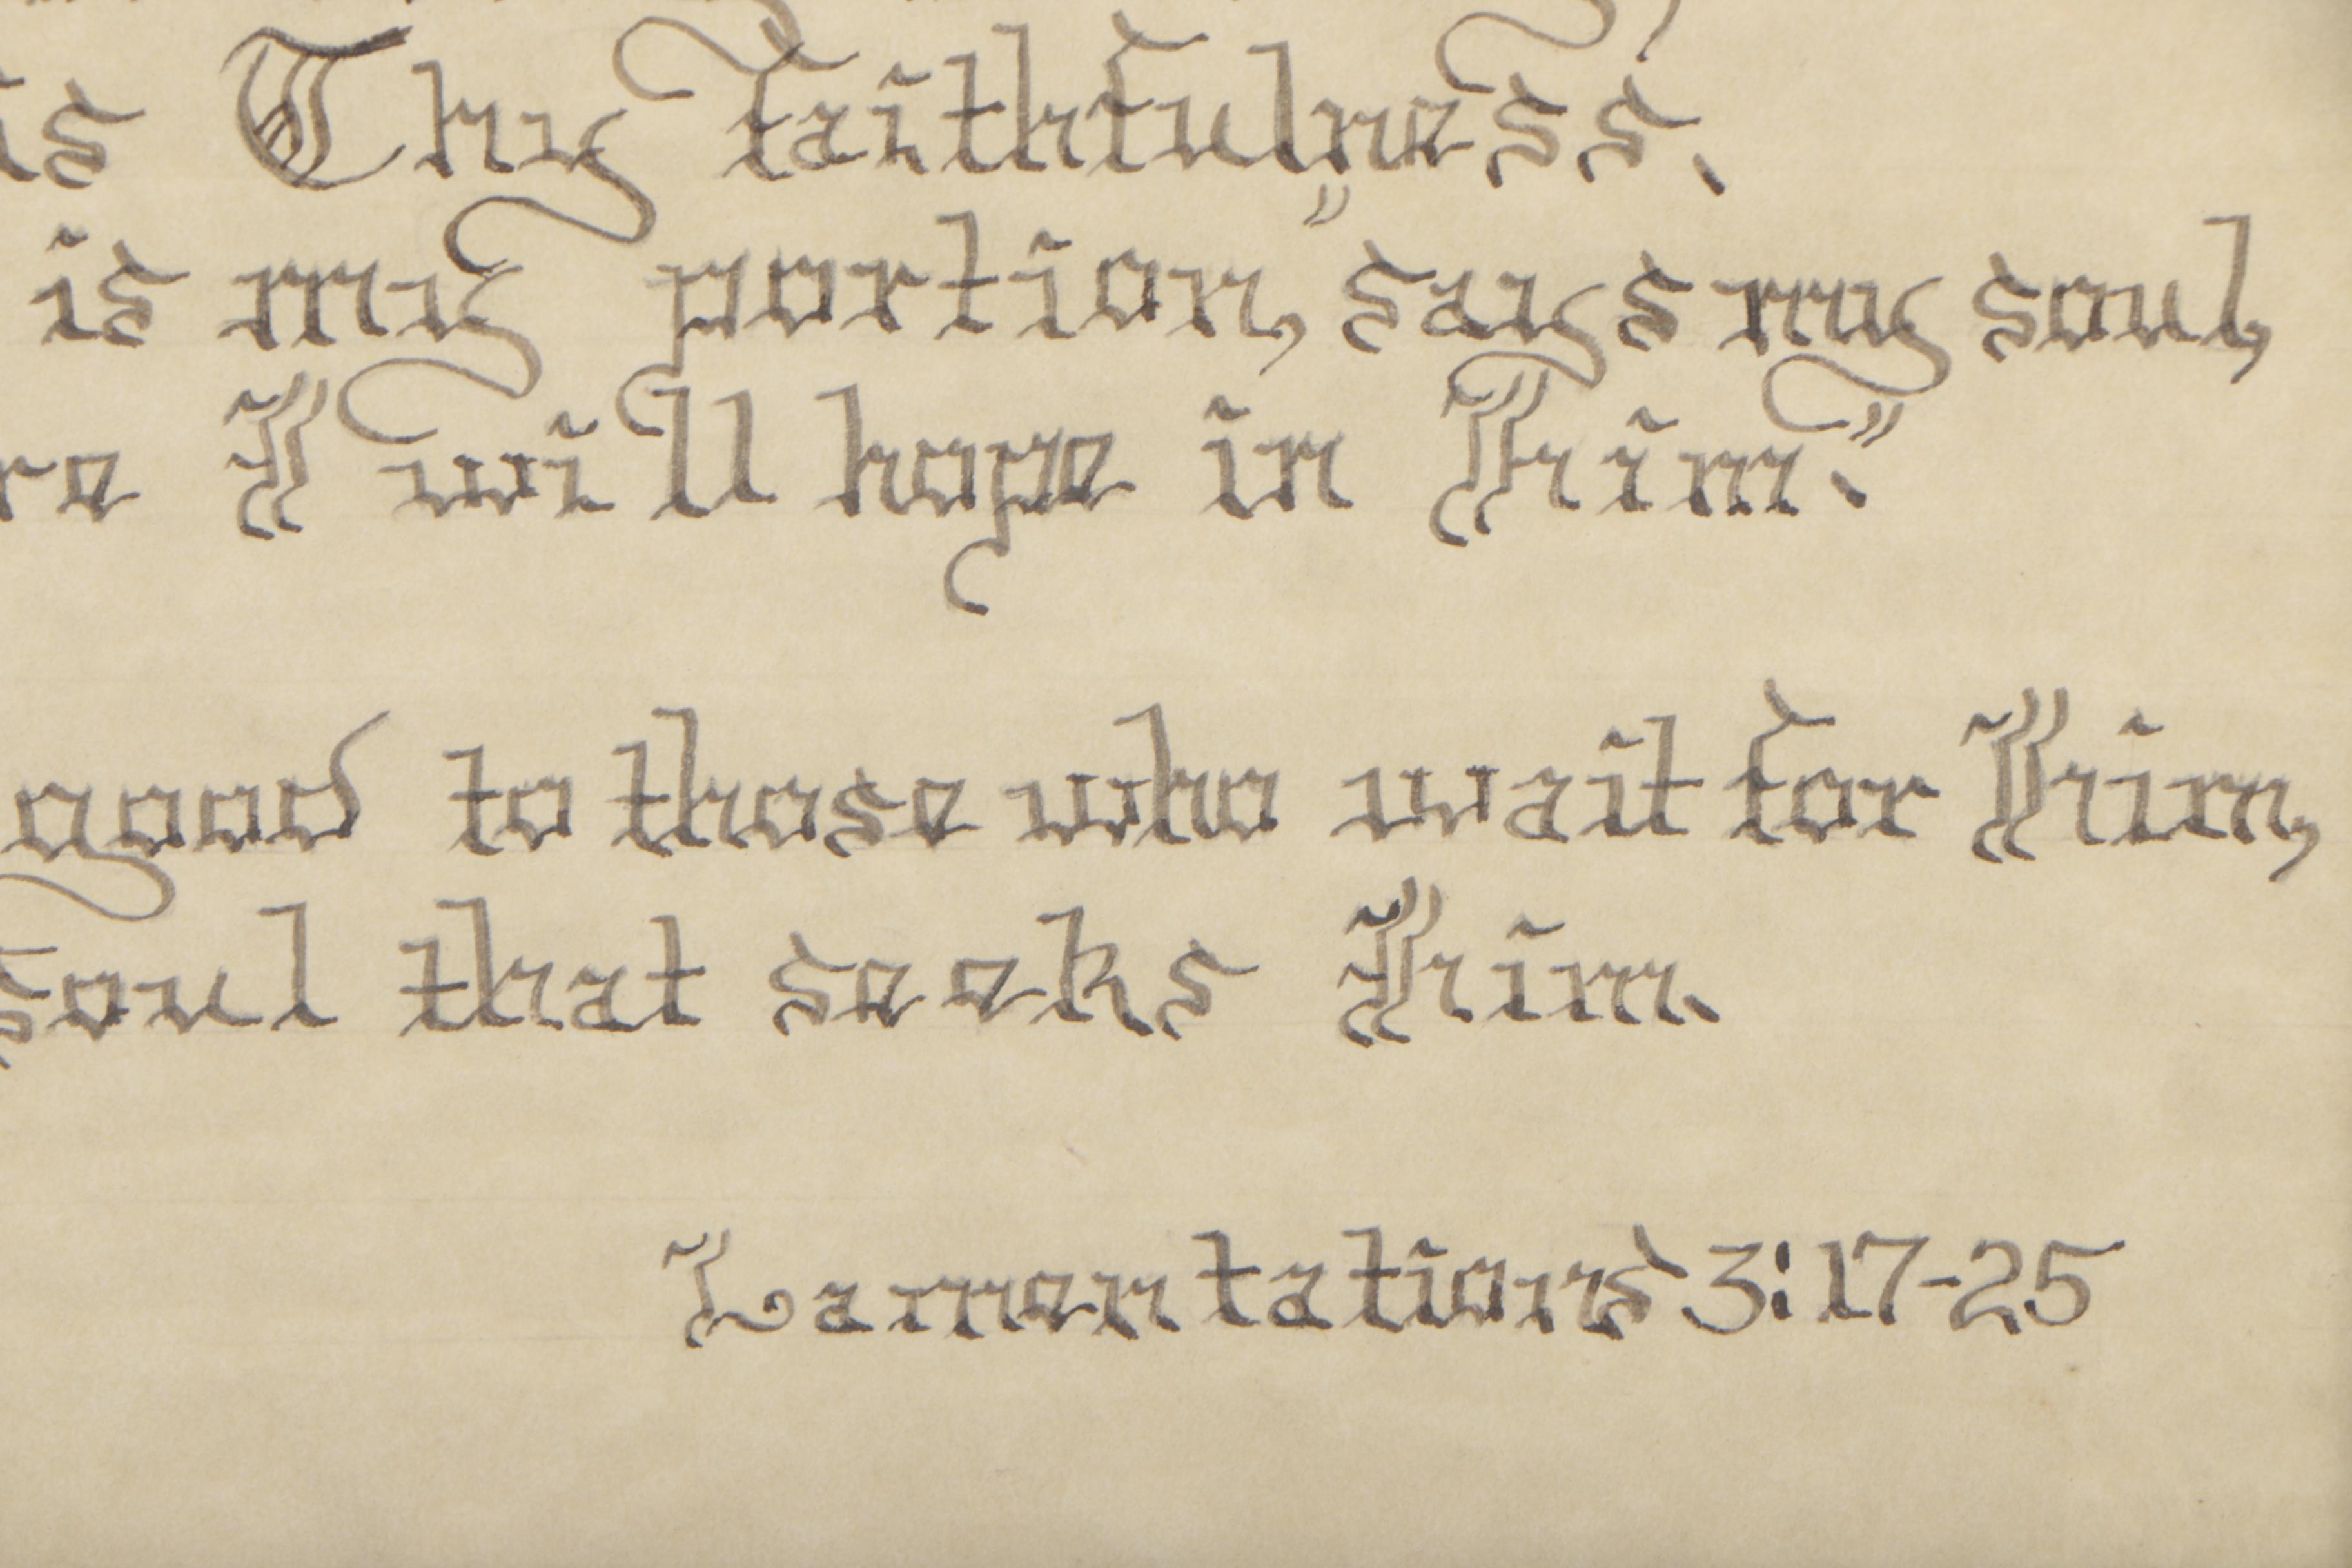 is Thy faithfulness.
is my portion," says my soul,
I will hope in Him."
good to those who wait for Him,
soul that seeks Him.
Lamentations 3:17-25